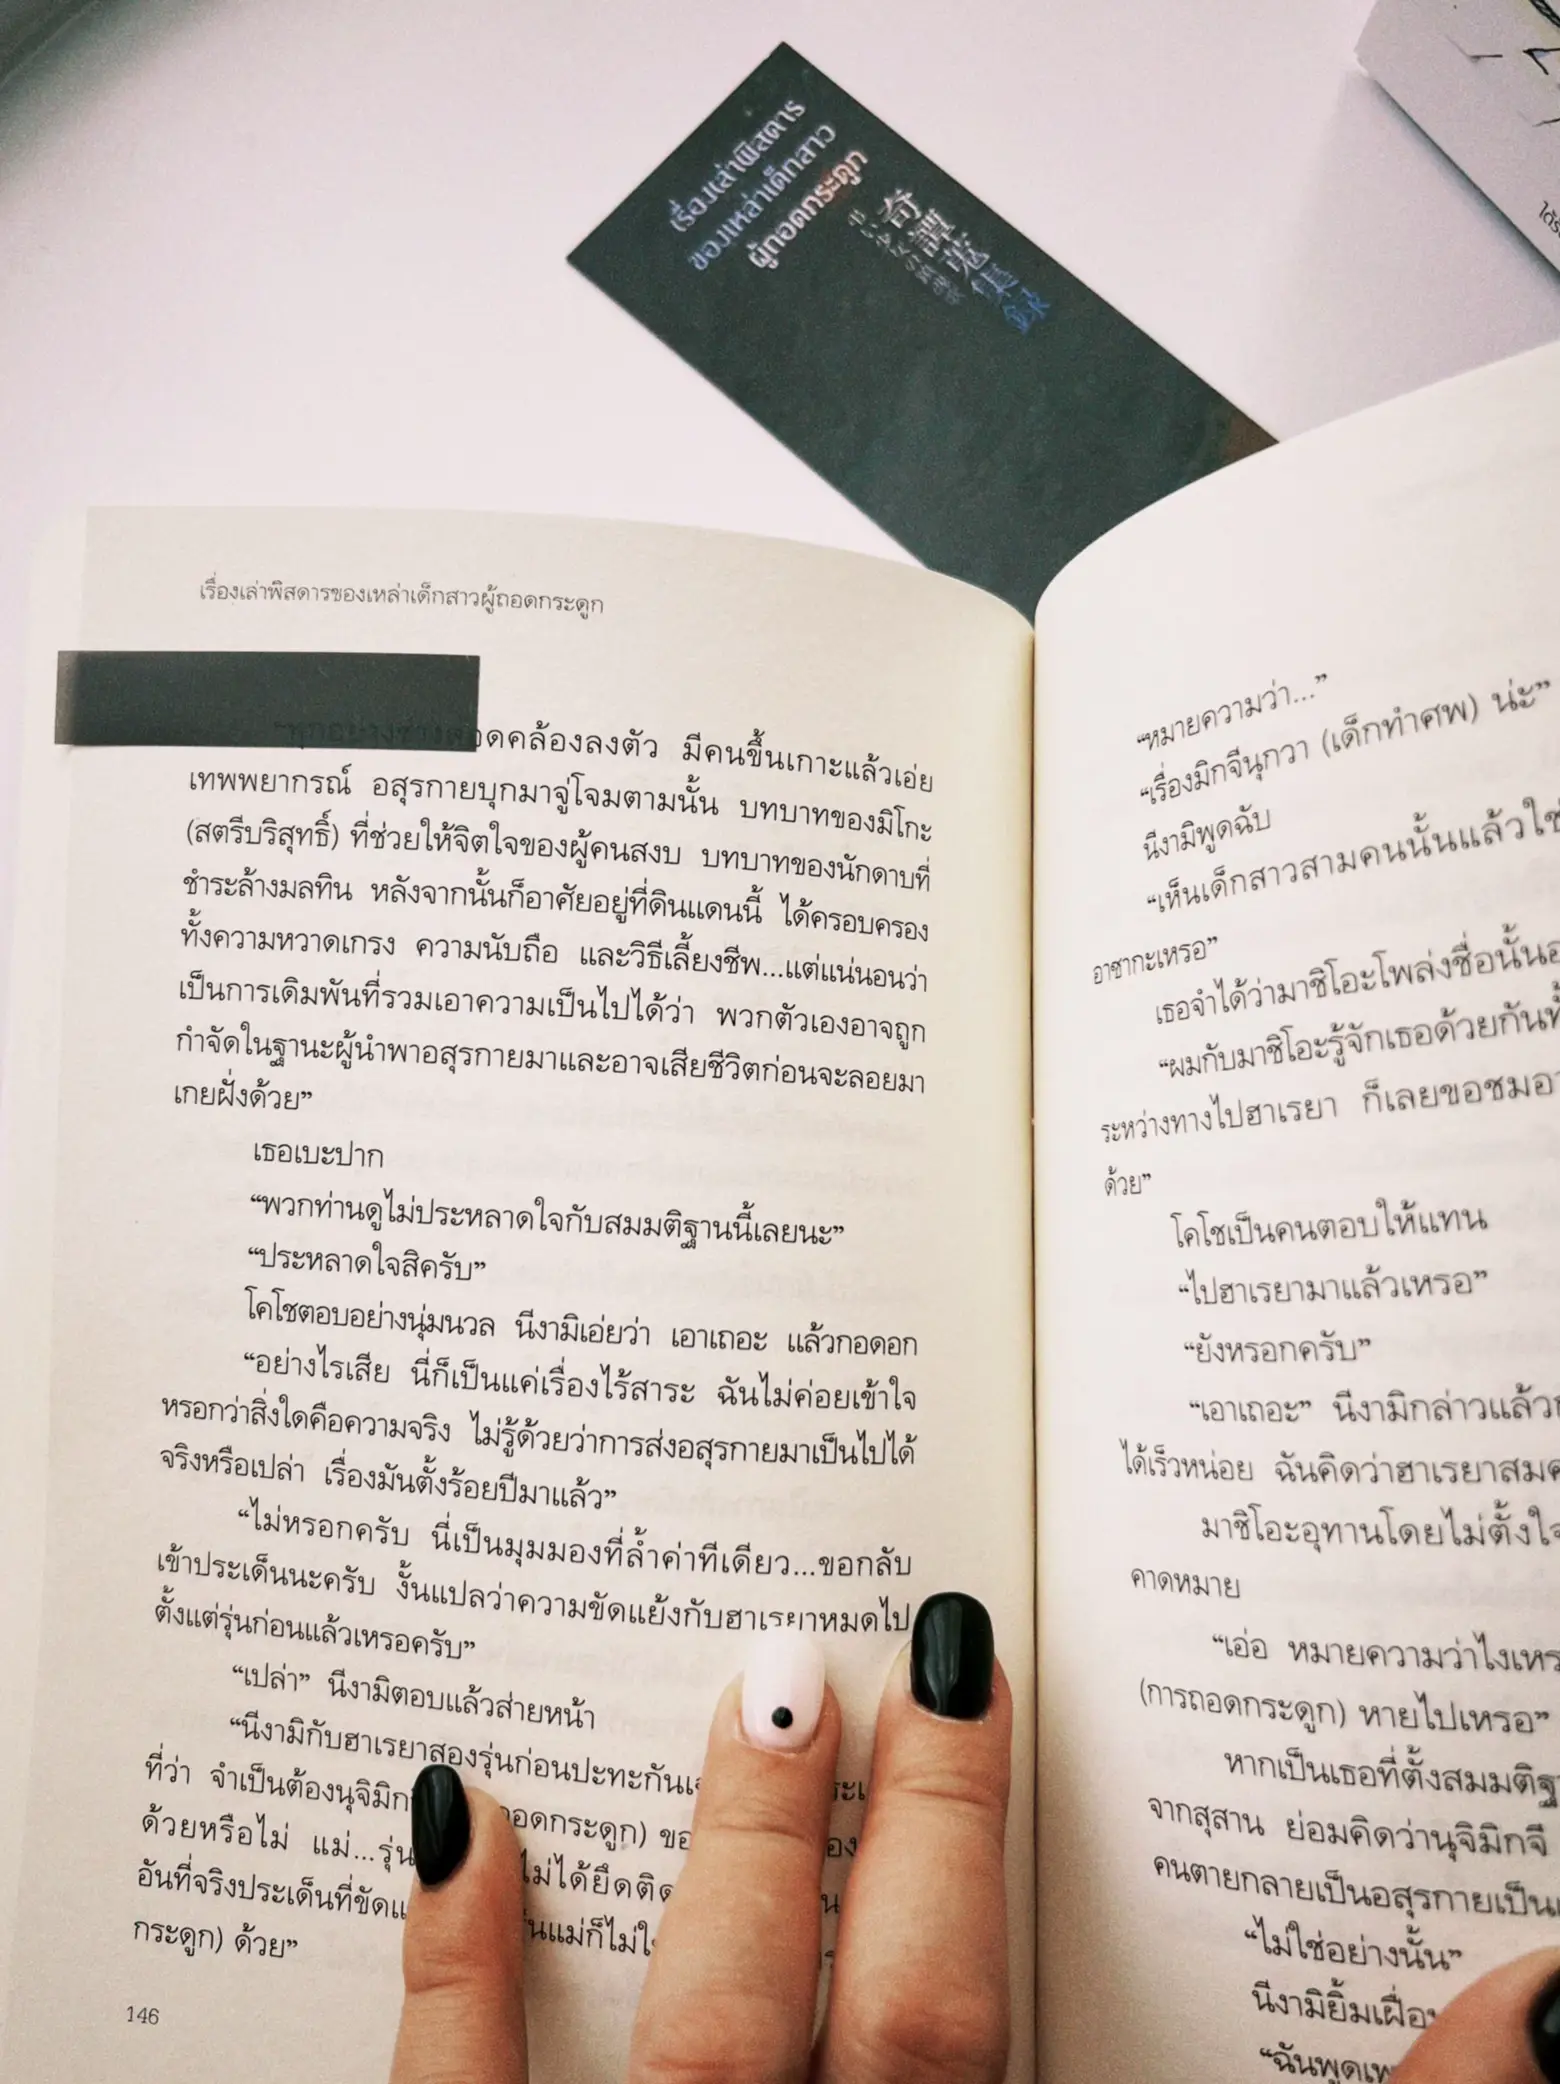 เรื่องเล่าพิสดาร
ของเหล่าเด็กสาว
ผู้ถอดกระดูก
奇譚蒐集録
เรื่องเล่าพิสดารของเหล่าเด็กสาวผู้ถอดกระดูก
อดคล้องลงตัว มีคนขึ้นเกาะแล้วเอ่ย
เทพพยากรณ์ อสุรกายบุกมาจู่โจมตามนั้น บทบาทของมิโกะ
(สตรีบริสุทธิ์) ที่ช่วยให้จิตใจของผู้คนสงบ บทบาทของนักดาบที่
ชำระล้างมลทิน หลังจากนั้นก็อาศัยอยู่ที่ดินแดนนี้ ได้ครอบครอง
ทั้งความหวาดเกรง ความนับถือ และวิธีเลี้ยงชีพ...แต่แน่นอนว่า
เป็นการเดิมพันที่รวมเอาความเป็นไปได้ว่า พวกตัวเองอาจถูก
กำจัดในฐานะผู้นำพาอสุรกายมาและอาจเสียชีวิตก่อนจะลอยมา
เกยฝั่งด้วย”
เธอเบะปาก
“พวกท่านดูไม่ประหลาดใจกับสมมติฐานนี้เลยนะ”
“ประหลาดใจสิครับ”
โคโชตอบอย่างนุ่มนวล นีงามิเอ่ยว่า เอาเถอะ แล้วกอดอก
“อย่างไรเสีย นี่ก็เป็นแค่เรื่องไร้สาระ ฉันไม่ค่อยเข้าใจ
หรอกว่าสิ่งใดคือความจริง ไม่รู้ด้วยว่าการส่งอสุรกายมาเป็นไปได้
จริงหรือเปล่า เรื่องมันตั้งร้อยปีมาแล้ว”
“ไม่หรอกครับ นี่เป็นมุมมองที่ล้ำค่าทีเดียว...ขอกลับ
เข้าประเด็นนะครับ งั้นแปลว่าความขัดแย้งกับฮาเรยาหมดไป
ตั้งแต่รุ่นก่อนแล้วเหรอครับ”
“เปล่า” นีงามิตอบแล้วส่ายหน้า
“นีงามิกับฮาเรยาสองรุ่นก่อนปะทะกัน
ที่ว่า จำเป็นต้องนุจิมิก ถอดกระดูก) ขอ
ด้วยหรือไม่ แม่...รุ่น ไม่ได้ยึดติด
อันที่จริงประเด็นที่ขัดแ นแม่ก็ไม่ใ
กระดูก) ด้วย”
146
“หมายความว่า...”
“เรื่องมิกจีนุกวา (เด็กทำศพ) น่ะ”
นีงามิพูดฉับ
“เห็นเด็กสาวสามคนนั้นแล้วใช่
อาซากะเหรอ”
เธอจำได้ว่ามาชิโอะโพล่งชื่อนั้น
“ผมกับมาชิโอะรู้จักเธอด้วยกันทั้
ระหว่างทางไปฮาเรยา ก็เลยขอชม
ด้วย”
โคโชเป็นคนตอบให้แทน
“ไปฮาเรยามาแล้วเหรอ”
“ยังหรอกครับ”
“เอาเถอะ” นีงามิกล่าวแล้ว
ได้เร็วหน่อย ฉันคิดว่าฮาเรยาสม
มาชิโอะอุทานโดยไม่ตั้งใจ
คาดหมาย
“เอ่อ หมายความว่าไงเหร
(การถอดกระดูก) หายไปเหรอ”
หากเป็นเธอที่ตั้งสมมติฐ
จากสุสาน ย่อมคิดว่านุจิมิกจี
คนตายกลายเป็นอสุรกายเป็น
“ไม่ใช่อย่างนั้น”
นีงามิยิ้มเฝื่อน
“ฉันพูดเพ